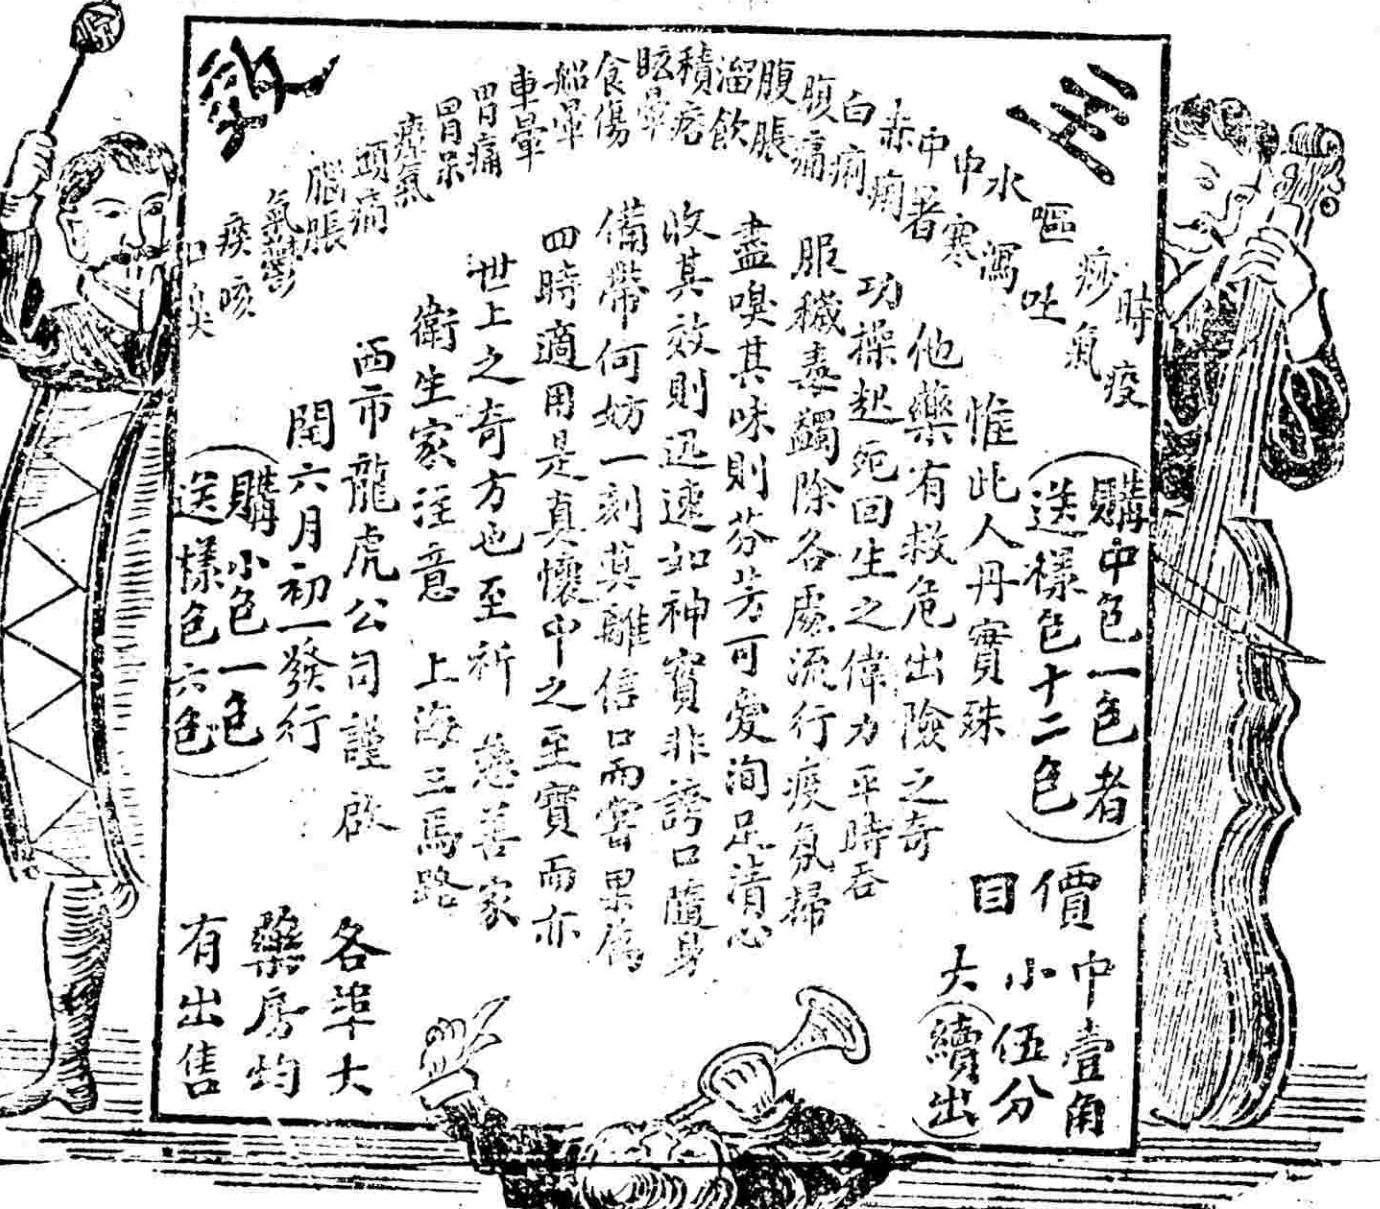 主
效
時疫
痧氣
嘔吐
水瀉
中寒
中暑
赤痢
白痢
腹痛
腹脹
溜飲
積痞
眩暈
食傷
船暈
車暈
胃痛
胃呆
痞氣
頭痛
腦脹
氣鬱
痰咳
口臭
購中包一包者
送樣包十二包
惟此人丹實殊
他藥有救危出險之奇
功操起死回生之偉力平時吞
服穢毒蠲除各處流行疫氛掃
盡嗅其味則芬芳可愛洵足清心
收其效則迅速如神實非誇口隨身
備帶何妨一刻莫離信口而嘗果爲
四時適用是真懷中之至寶而亦
世上之奇方也至祈 慈善家
衛生家注意 上海三馬路
西市龍虎公司謹啟
閏六月初一發行
購小包一包
送樣包六包
價目
中壹角
小伍分
大(續出)
各埠大
藥房均
有出售